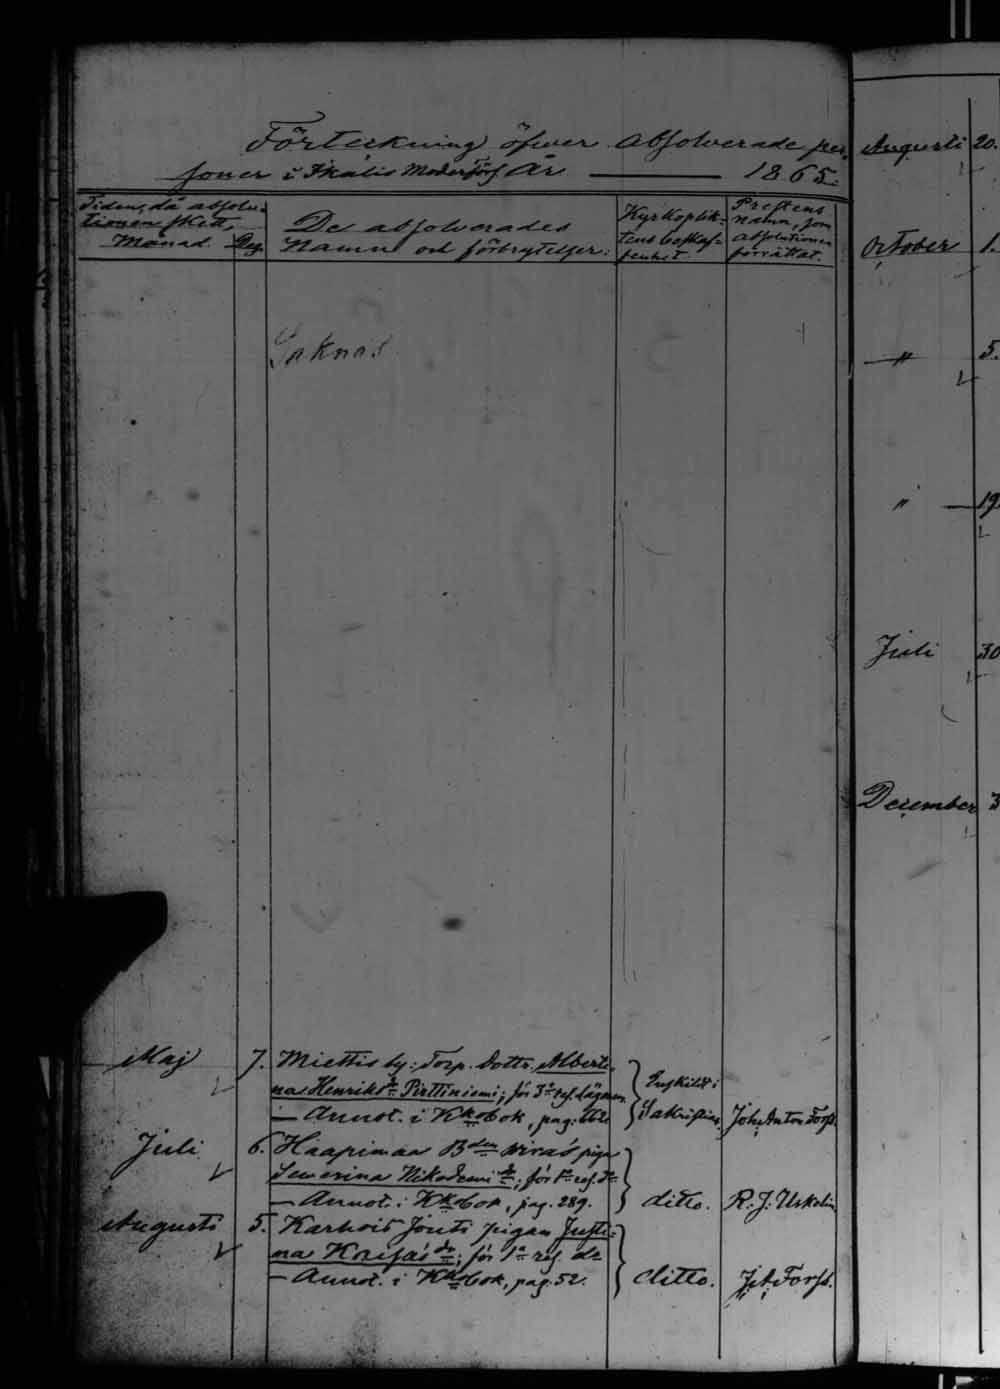 Förteckning öfver Absolverade per-
soner i Ikalis Moderförs. År — 1865.
Tiden, då absolu-
tionen skett,
Månad. Dag.
De absolverades
Namn och förbrytelser:
Kyrkoplik-
tens beskaf-
fenhet.
Prestens
namn, som
absolutionen
förrättat.
Saknas
Maj 7. Miettis by: Torp. Dottr. Alberti-
na Henriksdr Pirttiniemi; för 3e res. lägersm.
— Annot. i Kkobok, pag. 662
Enskildt i
Sakristian. Joh. Anton Forss.
Juli 6. Haapimaa Bden piga
Severina Nikodemidr; för 1e res. do
— Annot. i Kkobok, pag. 289.
ditto. R. J. Uskelin
Augusti 5. Karhois Jouti pigan Justi-
na Kaisasdr; för 1e res. do
— Annot. i Kkobok, pag. 52.
ditto. J. A. Forss.
Augusti 20.
October 1.
" 5.
" — 19
Juli 30
December 3